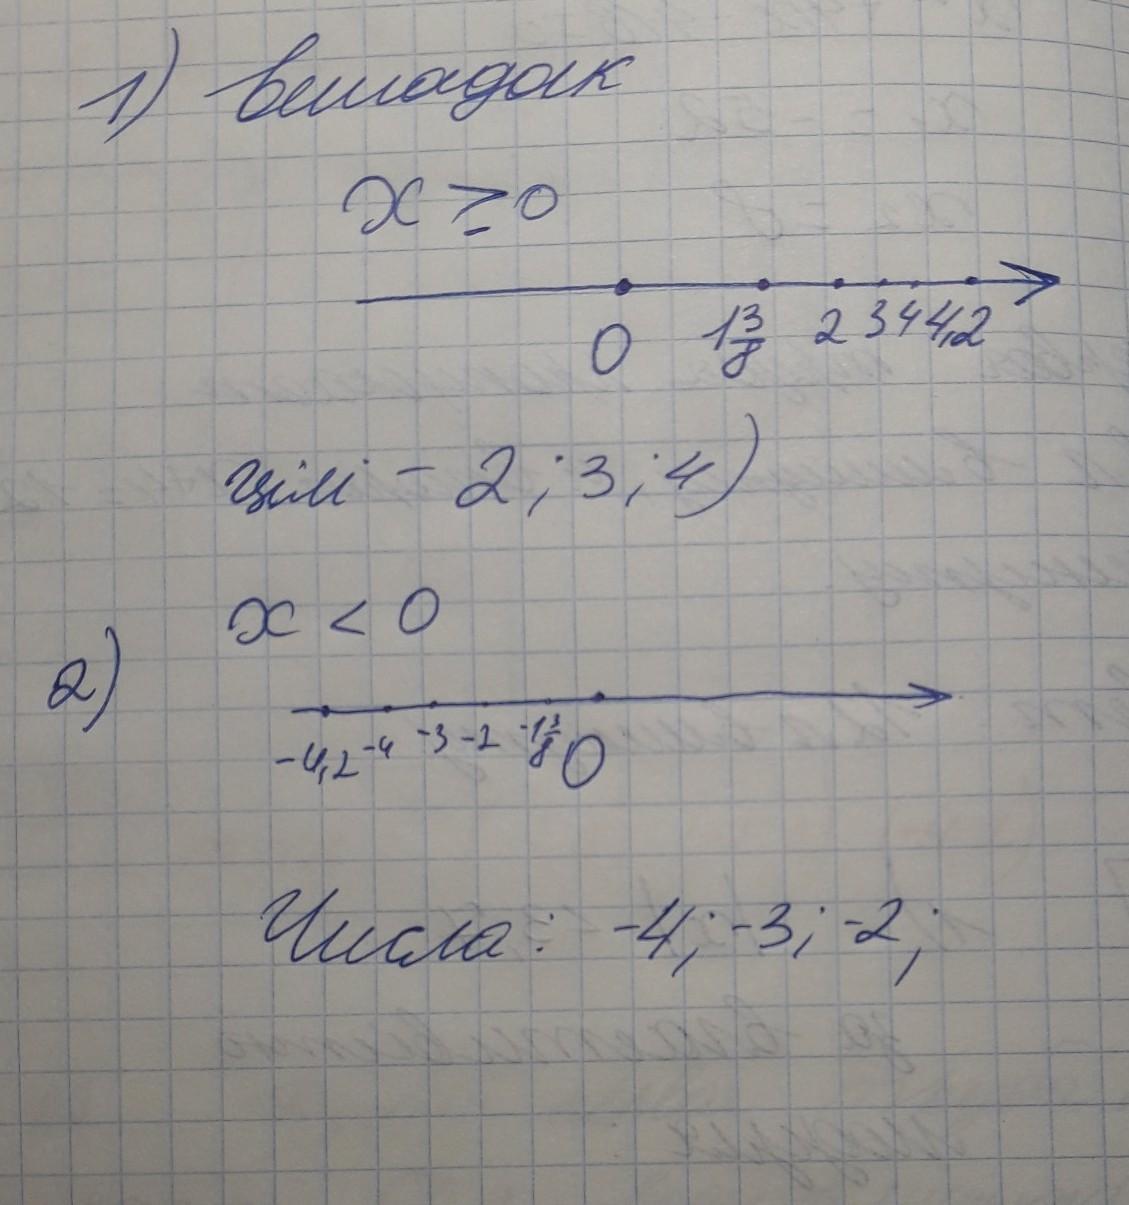 1) випадок
x ≥ 0
0 1 3/8 2 3 4 4,2
цілі - 2 ; 3 ; 4)
x < 0
2)
-4,2 -4 -3 -2 -1 3/8 0
Числа: -4; -3; -2;